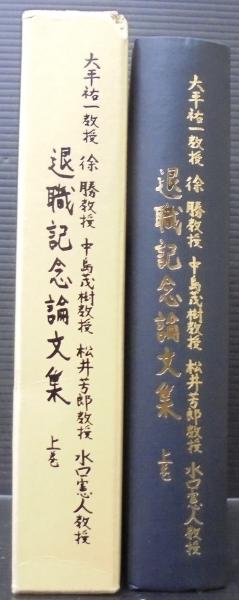 大平祐一教授 徐勝教授 中島茂樹教授 松井芳郎教授 水口憲人教授
退職記念論文集 上巻
大平祐一教授 徐勝教授 中島茂樹教授 松井芳郎教授 水口憲人教授
退職記念論文集 上巻